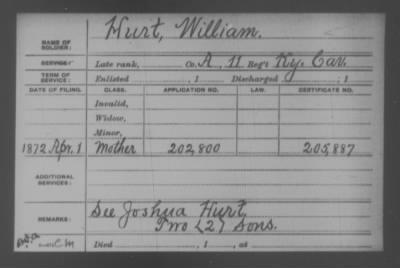 NAME OF SOLDIER: Hurt, William.
SERVICE: Late rank, Co. A, 11 Reg't Ky. Cav.
TERM OF SERVICE: Enlisted , 1 Discharged , 1
DATE OF FILING. CLASS. APPLICATION NO. LAW. CERTIFICATE NO.
Invalid,
Widow,
Minor,
1872 Apr. 1 Mother 202,800 205,887
ADDITIONAL SERVICES:
REMARKS: See Joshua Hurt,
Two (2) Sons.
Died , 1 , at